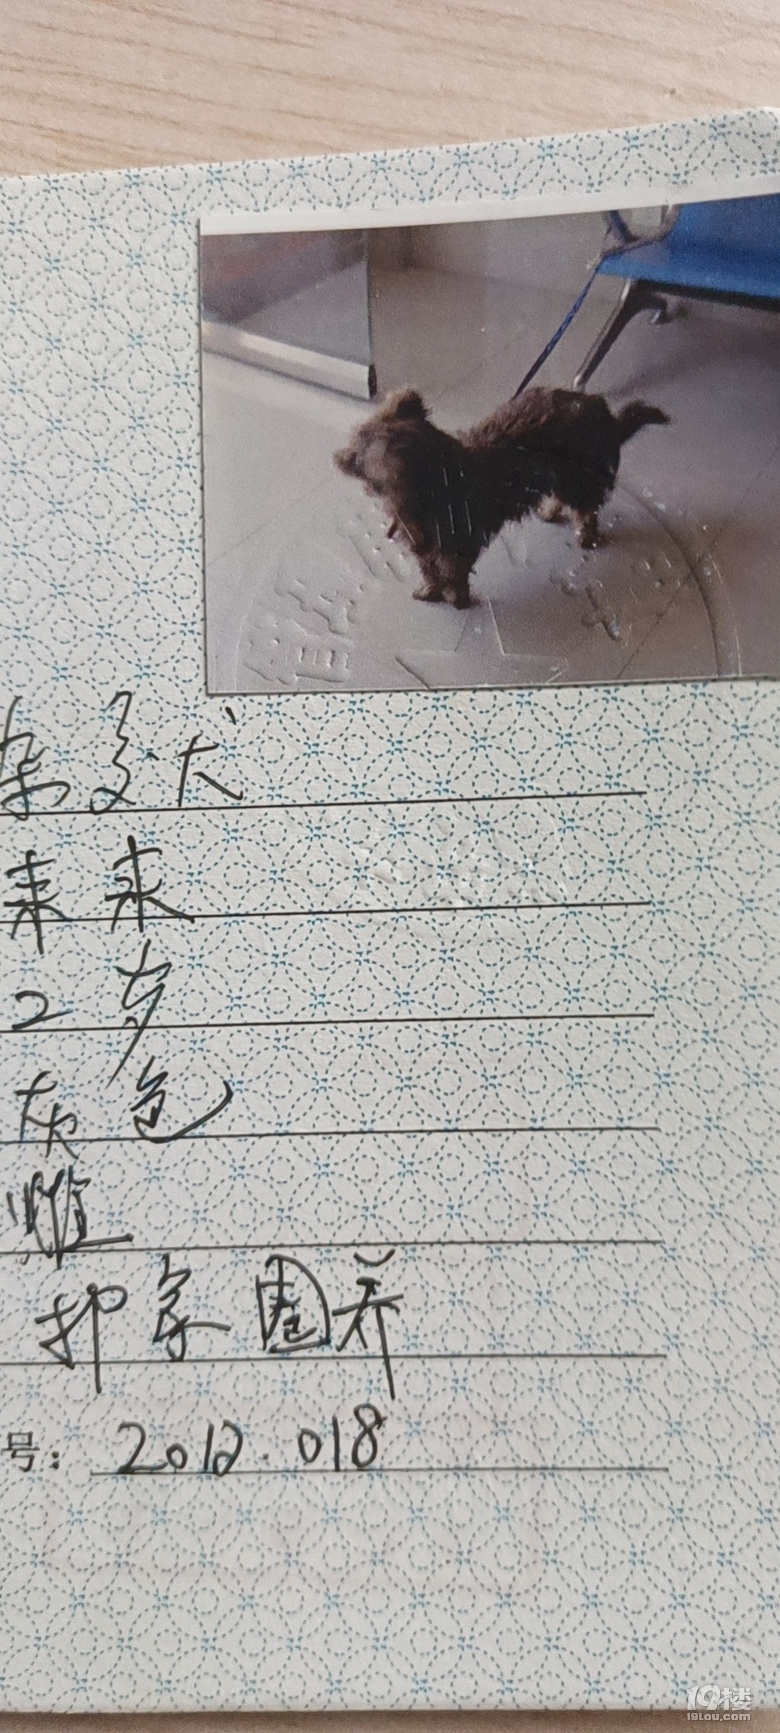 杂交犬
来来
2岁
灰色
雌
护家圈养
号: 2012.018
19楼
19lou.com